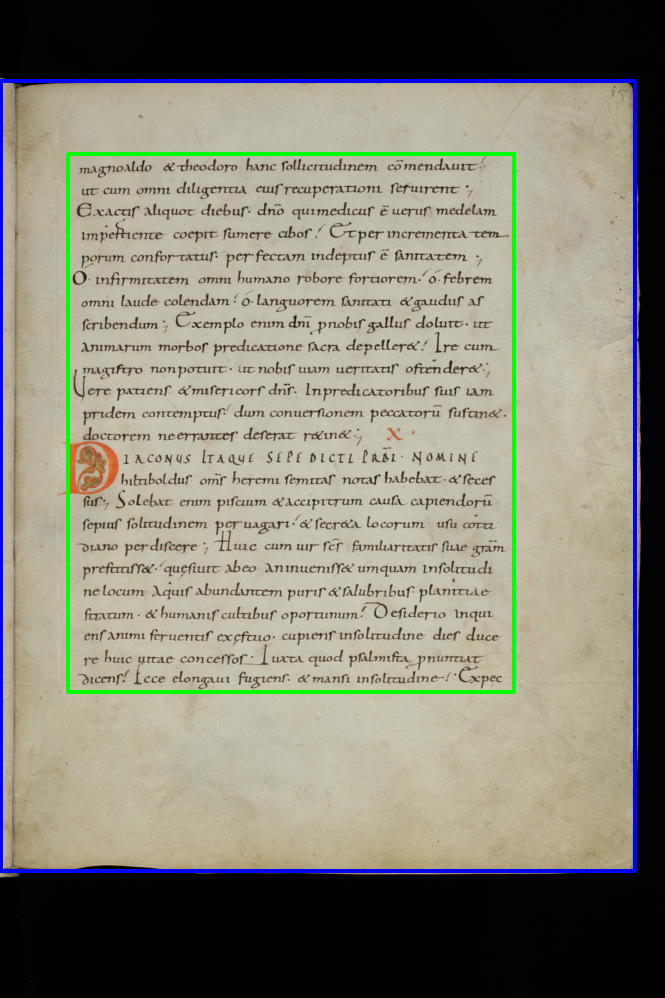 magnoaldo & theodoro hanc sollicitudinem cōmendauit;
ut cum omni diligentia eius recuperationi seruirent ;,
Exactis aliquot diebus· dn̄o qui medicus ē uerus medelam
impertiente coepit sumere cibos! Et per incrementa tem
porum confortatus· perfectam indeptus ē sanitatem ;,
O· infirmitatem omni humano robore fortiorem·! ó· febrem
omni laude colendam! ó· languorem sanitati & gaudiis as
scribendum ;, Exemplo enim dnī p nobis gallus doluit· ut
animarum morbos predicatione sacra depeller&! Ire cum
magistro non potuit· ut nobis uiam ueritatis ostender&;,
Uere patiens & misericors dn̄s· In predicatoribus suis iam
pridem contemptus! dum conuersionem peccatorū sustin&·
doctorem ne errantes deserat r&in&;, X·
DIACONUS ITAQUE SEPE DICTI PRB̄I· NOMINE
hiltiboldus om̄s heremi semitas notas habebat· & seces
sus;, Solebat enim piscium & accipitrum causa capiendorū
sepius solitudinem peruagari·! & secr&a locorum usu coti
diano perdiscere ;, Huic cum uir sc̄s familiaritatis suae gr̄am
prestitiss&· quęsiuit ab eo an inueniss& umquam in solitudi
ne locum Aquis abundantem puris & salubribus· planitiae
stratum · & humanis cultibus oportunum! Desiderio inqui
ens animi feruentis exęstuo· cupiens in solitudine dies duce
re huic uitae concessos· Iuxta quod psalmista pnuntiat
dicens! Ecce elongaui fugiens· & mansi in solitudine! Expec